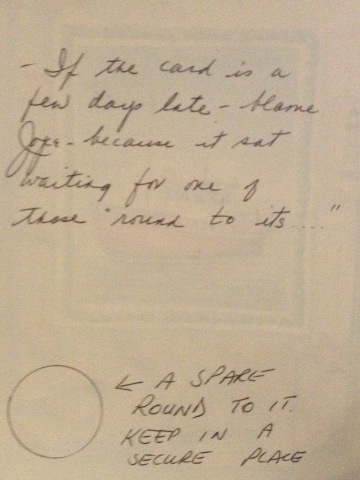 - If the card is a
few days late - blame
- because it sat
waiting for one of
those "round to its...."
← A SPARE
ROUND TO IT.
KEEP IN A
SECURE PLACE